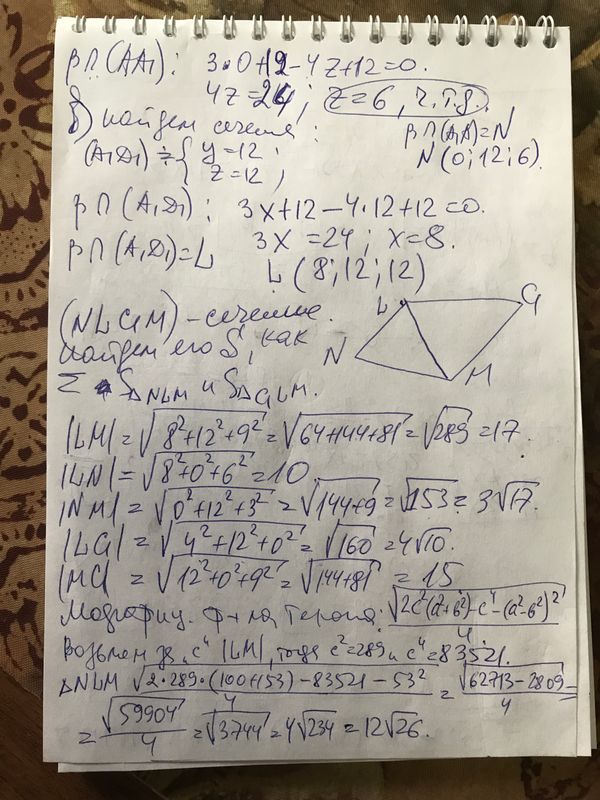 β∩(AA₁): 3·0+12-4z+12=0.
4z=24; z=6, ч.т.д.
б) найдем сечение: β∩(A₁A)=N
(A₁D₁) ÷ { y=12; N(0;12;6).
z=12;
β∩(A₁D₁): 3x+12-4·12+12=0.
β∩(A₁D₁)=L 3x=24; x=8.
L(8;12;12)
(NLGM) - сечение. L G
найдем его S, как N M
Σ S△NLM и S△GLM.
|LM|=√(8²+12²+9²)=√(64+144+81)=√289=17.
|LN|=√(8²+0²+6²)=10.
|NM|=√(0²+12²+3²)=√(144+9)=√153=3√17.
|LG|=√(4²+12²+0²)=√160=4√10.
|MG|=√(12²+0²+9²)=√(144+81)=15
Модифиц. ф-ла Герона: √(2c²(a²+b²)-c⁴-(a²-b²)²)/4
Возьмем за „c" |LM|, тогда c²=289 и c⁴=83521.
△NLM √(2·289·(100+153)-83521-53²)/4=√(62713-2809)/4=
=√59904/4=√3744=4√234=12√26.